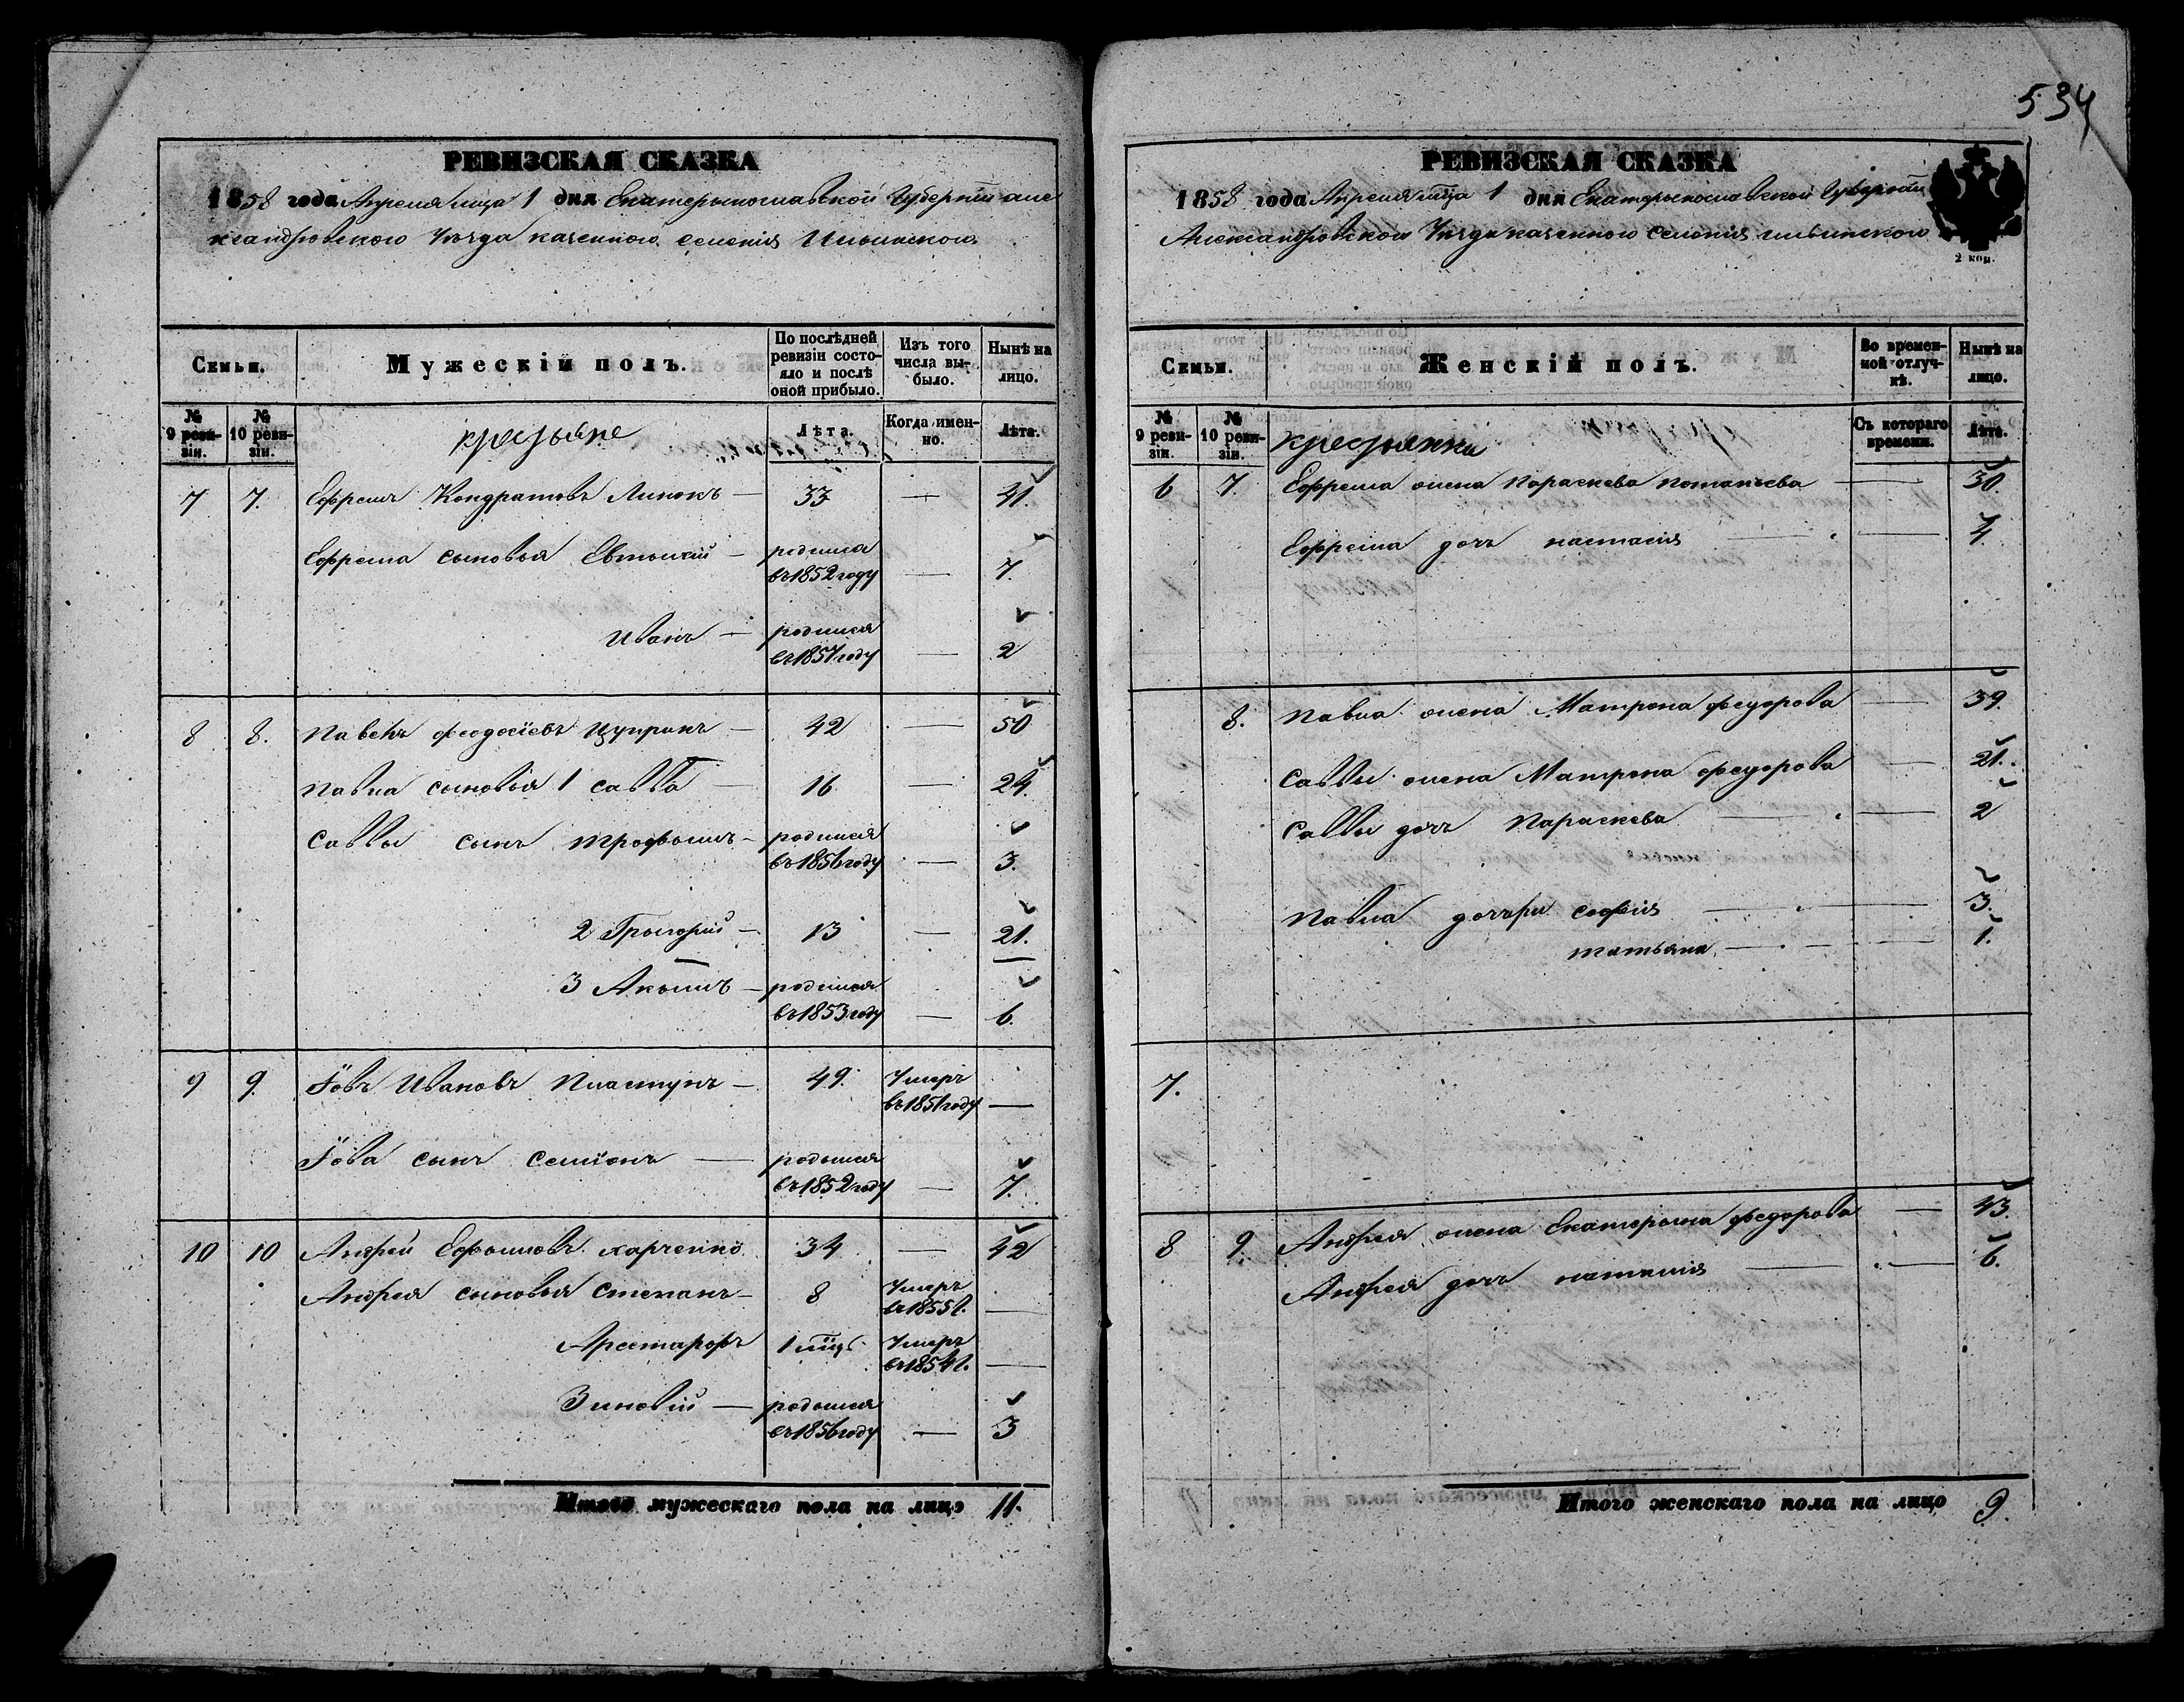 РЕВИЗСКАЯ СКАЗКА
1858 года Апреля мца 1 дня Екатерынославской Губерніи але
ксандровского Уѣзда казенного селенія Ильинского
Семьи.
Мужескій полъ.
По послѣдней ревизіи состояло и послѣ оной прибыло.
Изъ того числа выбыло.
Нынѣ на лицо.
№ 9 ревизіи.
№ 10 ревизіи.
крестьяне
Лѣта.
Когда именно.
Лѣта.
7 7. Ефремъ Кондратовъ Линокъ — 33 — 41.
Ефрема сыновья Евтыхій — родился
въ 1852 году — 7.
Иванъ — родился
въ 1857 году — 2
8 8. Павелъ феодосіевъ Цуприкъ — 42 — 50
Павла сыновья 1 савва — 16 — 24.
Саввы сынъ трофымъ — родился
въ 1856 году — 3.
2 Грыгорій — 13 — 21.
3 Акымъ — родился
въ 1853 году — 6.
9 9. Їовъ Ивановъ Пластунъ — 49. Умеръ
въ 1851 году —
Їова сынъ Семіонъ — родылся
въ 1852 году — 7.
10 10 Андрей Ефымовъ харченко 34 — 42
Андрея сыновья Степанъ — 8 Умеръ
въ 1855 г. —
Арстархъ 1 мцъ Умеръ
въ 1854 г. —
Зиновій — родылся
въ 1856 году — 3
Итого мужескаго пола на лицо 11.
534
РЕВИЗСКАЯ СКАЗКА
1858 года Апреля мца 1 дня Екатерынославской Губерніи
Александровского Уѣзда казенного селенія ильинского
2 коп.
Семьи.
Женскій полъ.
Во временной отлучкѣ.
Нынѣ на лицо.
№ 9 ревизіи.
№ 10 ревизіи.
крестьянки
Съ котораго времени.
Лѣта.
6 7. Ефрема жена Параскева Потапьева — 30.
Ефрема дочь настасія — 7.
8. Павла жена Матрона федорова — 39.
Саввы жена Матрона федорова — 21.
Саввы дочь Параскева — 2
Павла дочери софія — 3.
татьяна — 1.
7.
8 9. Андрея жена Екатерына федорова — 43.
Андрея дочь наталія — 6.
Итого женскаго пола на лицо 9.